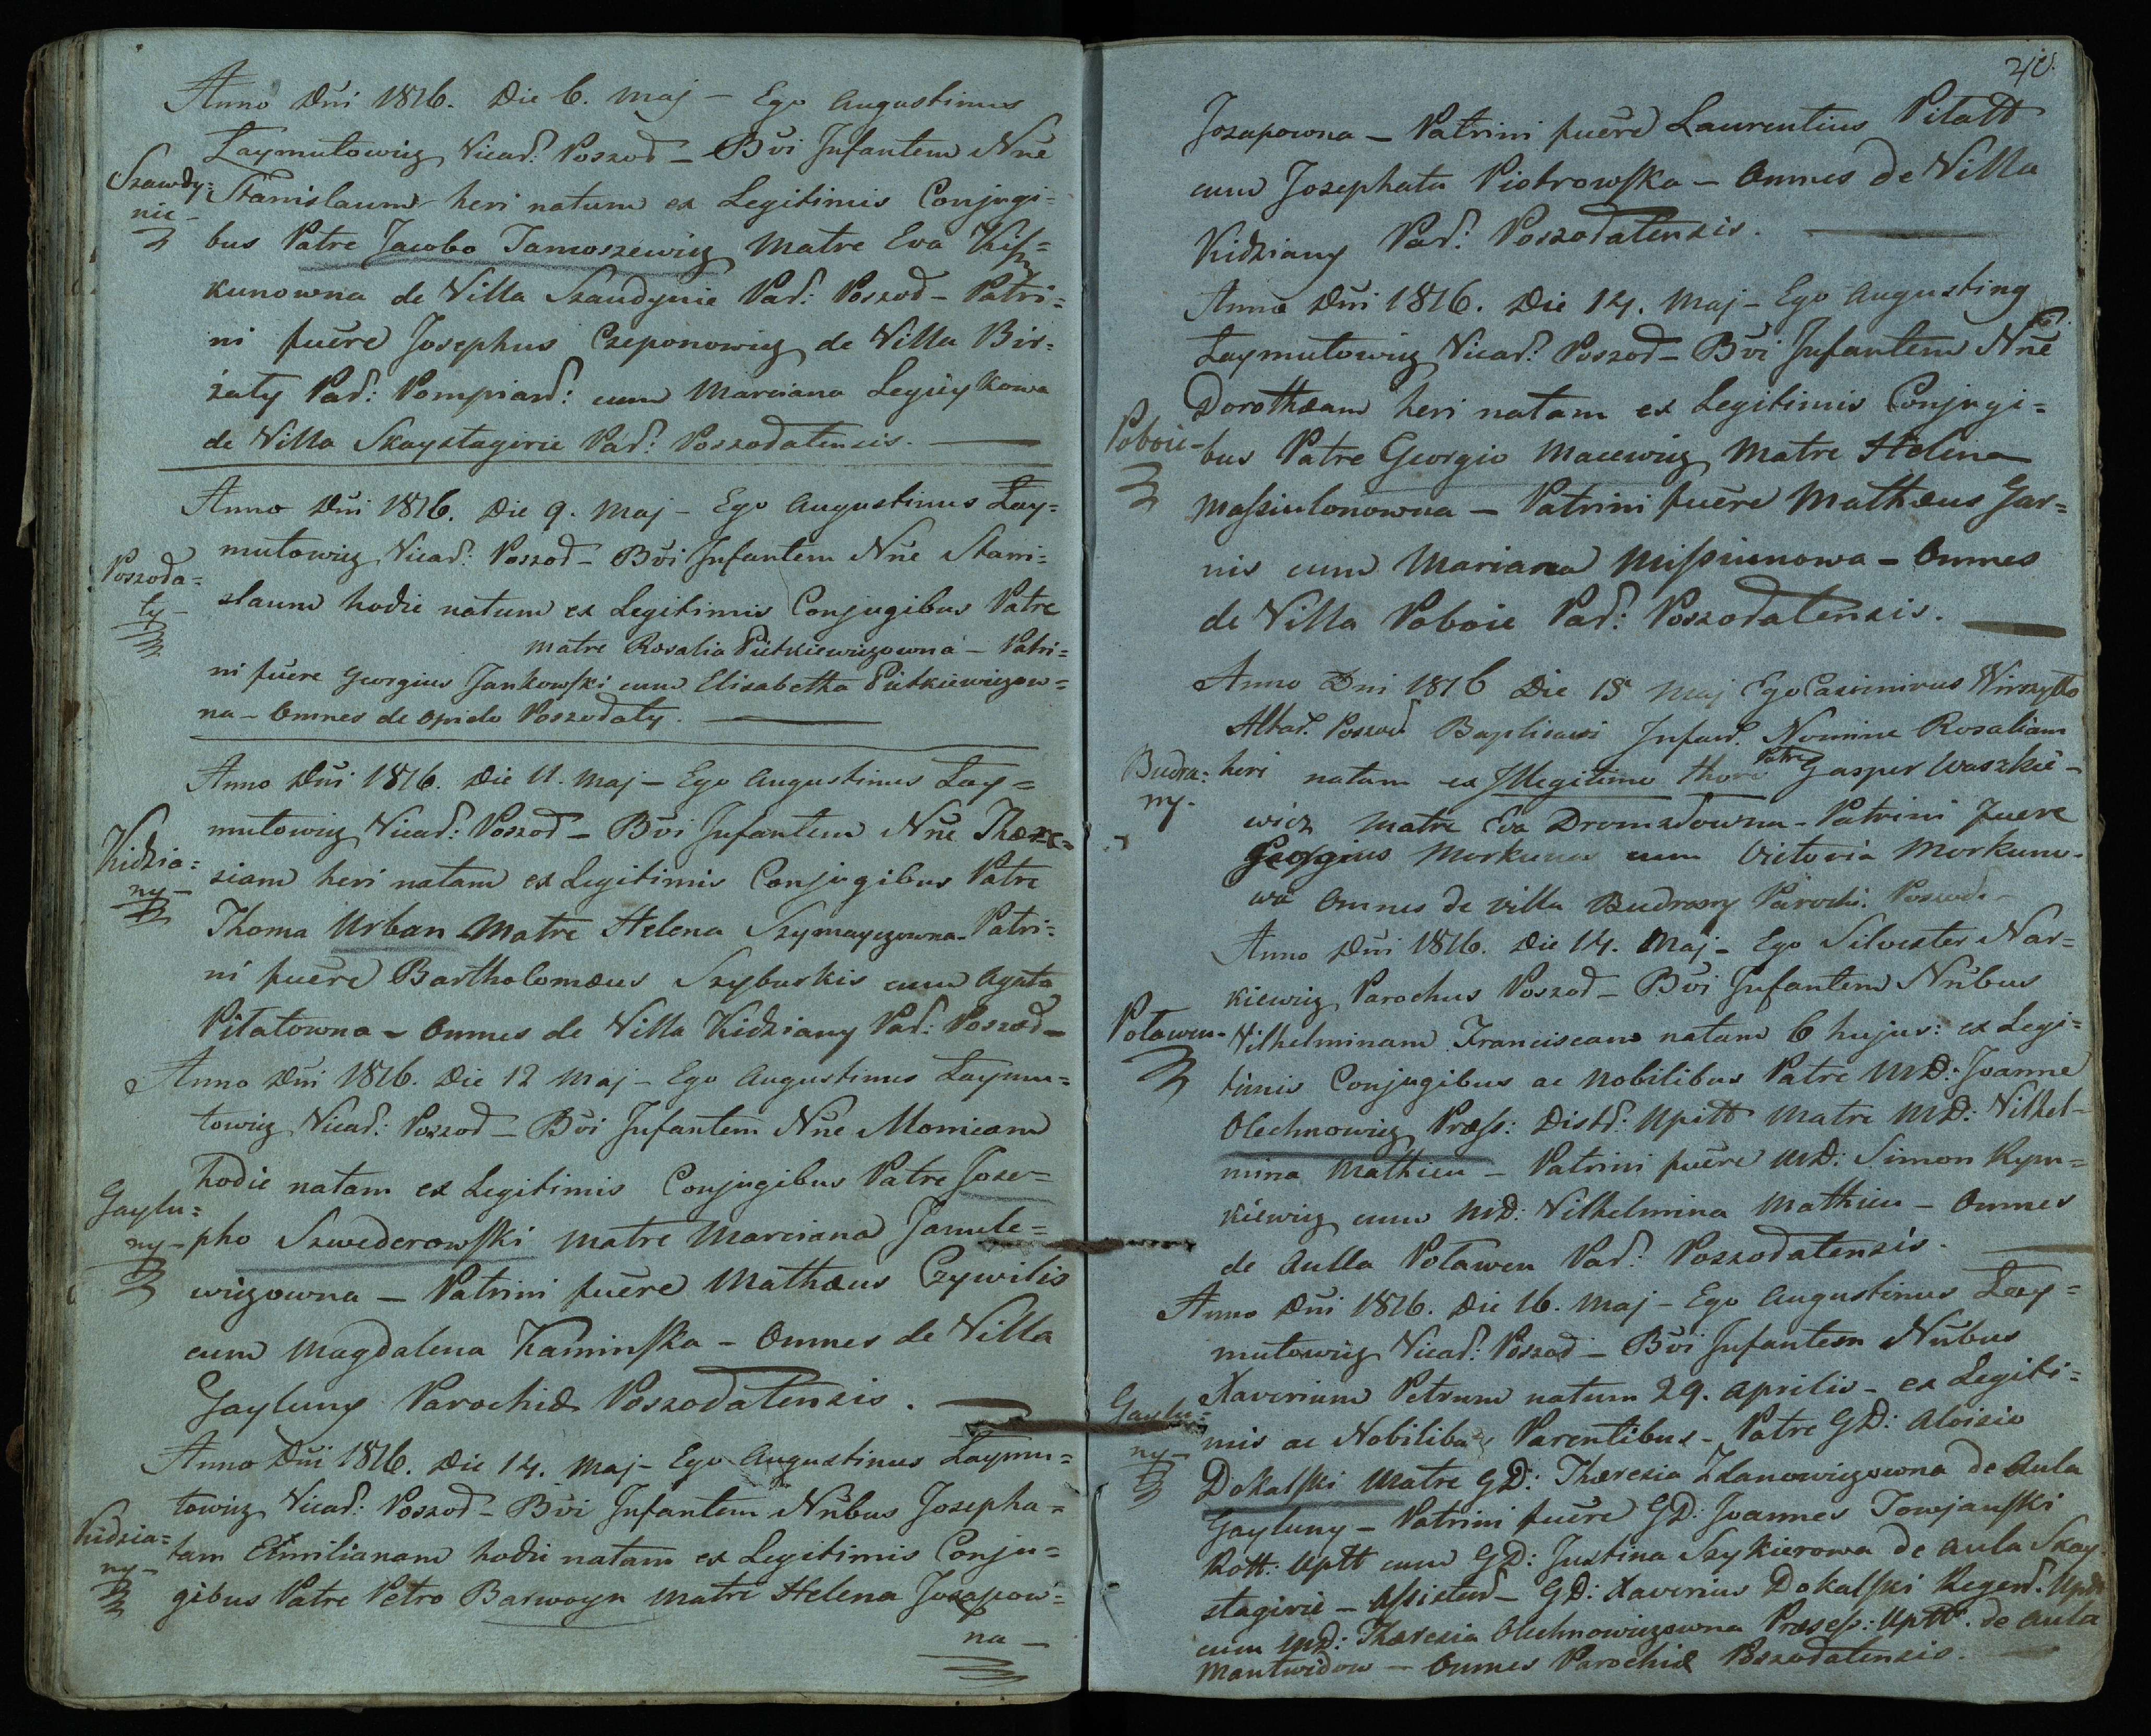 Anno Dñi 1816. Die 6. Maj – Ego Augustinus
Laymutowicz Vicar: Poszod – Bvi Infantem Nñe
Szawdy=
nie –
Stanislaum heri natum ex Legitimis Conjugi=
bus Patre Jacobo Tamoszewicz Matre Eva Kisz=
kunowna de Villa Szaudynie Par: Poszod – Patri=
ni fuêre Josephus Czeponowicz de Villa Bir=
żaty Par: Pompian: cum Marciana
de Villa Skaystagirie Par: Poszodatensis.
Anno Dñi 1816. Die 9. Maj – Ego Augustinus Lay=
mutowicz Vicar: Poszod – Bvi Infantem Nñe Stani=
Poszoda=
ty –
slaum hodie natum ex Legitimis Conjugibus Patre
Matre Rosalia Pietkiewiczowna – Patri=
ni fuêre Georgius Jankowski cum Elisabetha Pietkiewiczow=
na – Omnes de Opido Poszodaty.
Anno Dñi 1816. Die 11. Maj – Ego Augustinus Lay=
mutowicz Vicar: Poszod – Bvi Infantem Nñe Thære=
Kidzia=
ny –
siam heri natam ex Legitimis Conjugibus Patre
Thoma Urban Matre Helena Szymayczowna – Patri=
ni fuêre Bartholomæus Szyburkis cum Agata
Pilatowna – Omnes de Villa Kidziany Par: Poszod –
Anno Dñi 1816. Die 12 Maj – Ego Augustinus Laymu=
towicz Vicar: Poszod – Bvi Infantem Nñe Monicam
hodie natam ex Legitimis Conjugibus Patre Jose=
Gaylu=
ny –
pho Szwederowski Matre Marciana Janule=
wiczowna – Patrini fuêre Mathæus Czywilis
cum Magdalena Kaminska – Omnes de Villa
Gayluny Parochiæ Poszodatensis.
Anno Dñi 1816. Die 14. Maj – Ego Augustinus Laymu=
towicz Vicar: Poszod – Bvi Infantem Nñibus Josepha=
Kidzia=
ny –
tam Emilianam hodie natam ex Legitimis Conju=
gibus Patre Petro Barwoyn Matre Helena Jozapow=
na –
Jozapowna – Patrini fuêre Laurentius Pilatt
cum Josephata Piotrowska – Omnes de Villa
Kidziany Par: Poszodatensis.
Anno Dñi 1816. Die 14. Maj – Ego Augustin9
Laymutowicz Vicar: Poszod – Bvi Infantem Nñe
Dorothæam heri natam ex Legitimis Conjugi=
Poboie –
bus Patre Georgio Macewicz Matre Helena
Massiulonowna – Patrini fuêre Mathæus Gar=
nis cum Mariana Missiunowa – Omnes
de Villa Poboie Par: Poszodatensis.
Anno Dni 1816 Die 15 Maj Ego Casimirus Wirszyłło
Altar. Poszod Baptisavi Infan. Nomine Rosaliam
Budra=
ny –
heri natam ex Illegitimo thoro Patre Gasper Waszkie –
wicz Matre Eva Dromzdowna – Patrini fuere
Georgius Morkunas cum Victoria Morkuno –
wa Omnes de villa Budrany Parochi. Poszod. –
Anno Dñi 1816. Die 14. Maj – Ego Silvester Nar=
kiewicz Parochus Poszod – Bvi Infantem Nñibus
Poławen –
Wilhelminam Franciscam natam 6 hujus: ex Legi=
timis Conjugibus ac Nobilibus Patre MD: Joanne
Olechnowicz Præss: Distr: Upitt Matre MD: Vilhel –
mina Mathieu – Patrini fuêre MD: Simon Rym=
kiewicz cum MD: Vilhelmina Mathieu – Omnes
de Aulla Poławen Par: Poszodatensis.
Anno Dñi 1816. Die 16. Maj – Ego Augustinus Lay=
mutowicz Vicar: Poszod – Bvi Infantem Nñibus
Xaverium Petrum natum 29. Aprilis – ex Legiti=
Gaylu=
ny –
mis ac Nobilibus Parentibus – Patre GD: Aloisio
Dokalski Matre GD: Thæresia Zdanowiczowna de Aula
Gayluny – Patrini fuêre GD: Joannes Towjanski
Rott: Uptt cum GD: Justina Szykierowa de Aula Skay
stagirie – Assisten – GD: Xaverius Dokalski Regen.
cum MD: Thæresia Olechnowiczowna Præsess: Uptt. de Aula
Mantwidow – Omnes Parochiæ Poszodatensis.